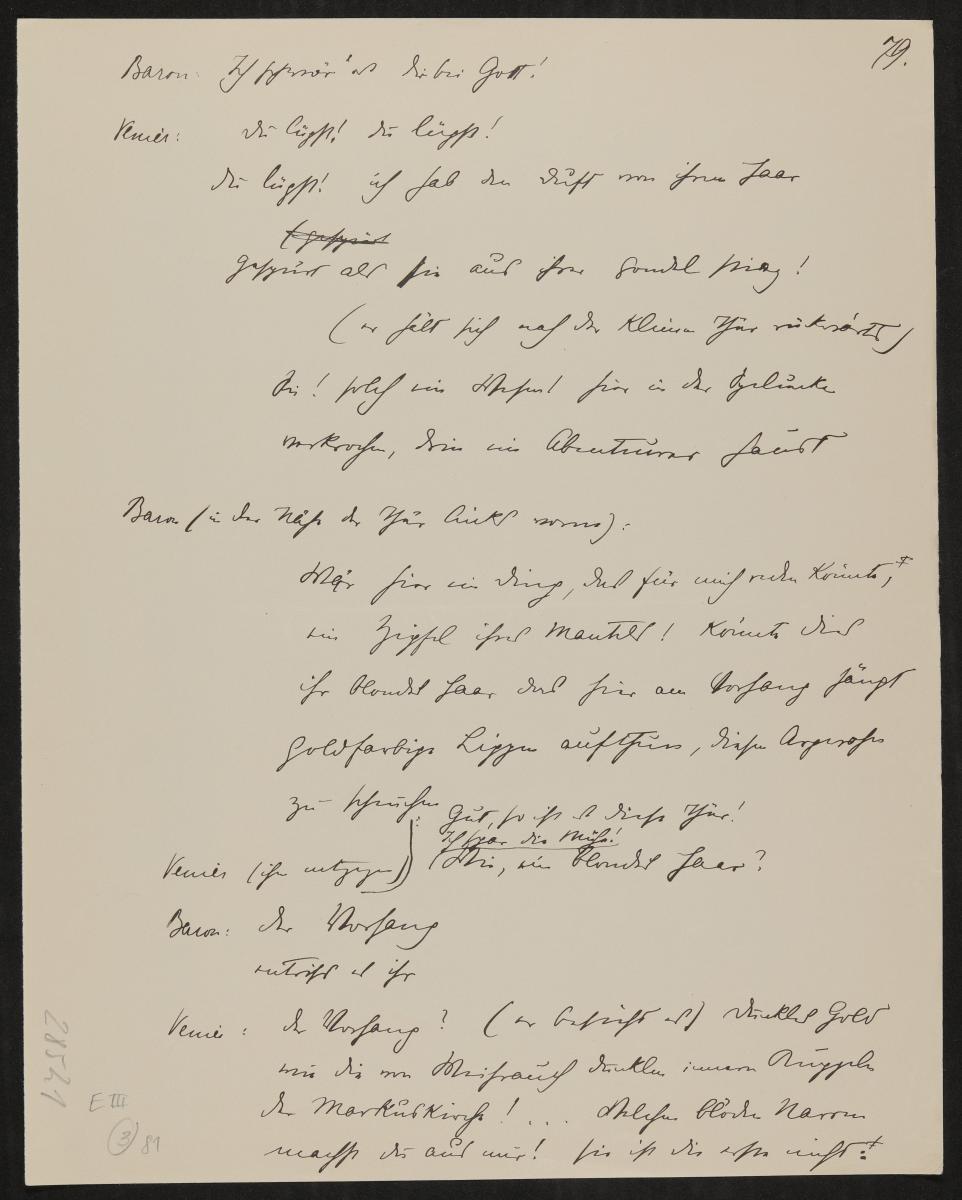 79.
Baron: Ich schwör' es dir bei Gott!
Venier: Du lügst! du lügst!
du lügst! ich hab den Duft von ihrem Haar
gespürt
gespürt als sie aus ihrer Gondel stieg!
(er hält sich nach der kleinen Thür rückwärts)
Sie! solch ein Wesen! hier in der Spelunke
verkrochen, drin ein Abenteurer haust
Baron (in der Nähe der Thür links vorne):
Wär hier ein Ding, das für mich reden könnte,
ein Zipfel ihres Mantels! könnte dies
ihr blondes Haar das hier am Vorhang hängt
goldfarbige Lippen aufthun, diesen Argwohn
zu scheuchen
Gut, so ist es diese Thür!
Ich spar die Mühe!
Venier (ihm entgegen) Wie, ein blondes Haar?
Baron: der Vorhang
entriss es ihr
Venier: der Vorhang? (er besieht es) dunkles Gold
wie die von Weihrauch dunklen innern Kuppeln
der Markuskirche! ... Welchen blöden Narren
machst du aus mir! sie ist die erste nicht:
28571
E III
3 81